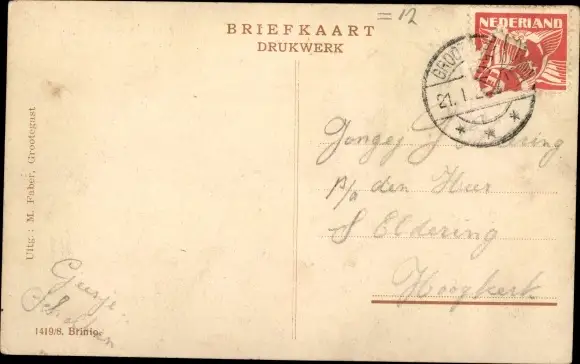 = 12
BRIEFKAART
DRUKWERK
NEDERLAND
GROOT
21.1.2
Jongej S Eldering
p/a den Heer
S Eldering
Hoogkerk
Uitg.: M. Faber, Grootegast
Geesje
Scholten
1419/8.